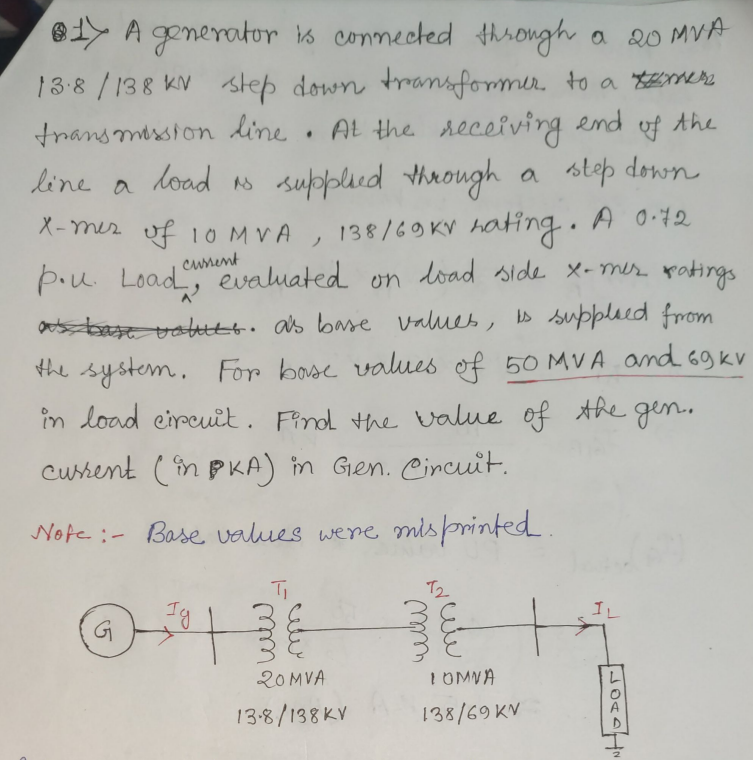 Q1> A generator is connected through a 20 MVA
13.8/138 KV step down transformer to a
transmission line. At the receiving end of the
line a load is supplied through a step down
X-mer of 10 MVA, 138/69KV rating. A 0.72
p.u. Load current, evaluated on load side x-mer ratings
as base values. as base values, is supplied from
the system. For base values of 50 MVA and 69 KV
in load circuit. Find the value of the gen.
current (in KA) in Gen. Circuit.
Note :- Base values were misprinted.
G Ig T1 T2 IL
20MVA 10MVA
13.8/138KV 138/69 KV
LOAD